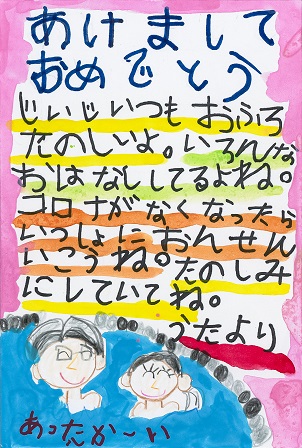 あけまして
おめでとう
じいじいつもおふろ
たのしいよ。いろんな
おはなししてるよね。
コロナがなくなったら
いっしょにおんせん
いこうね。たのしみ
にしていてね。
うたより
あったか〜い